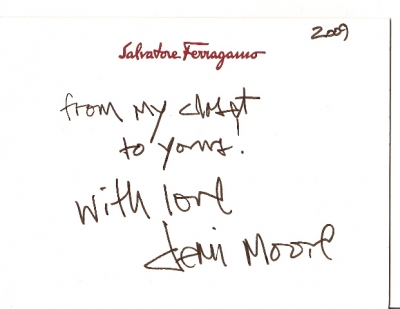 2009
Salvatore Ferragamo
from my closet
to yours.
with love
Demi Moore